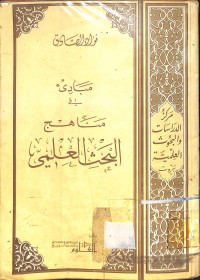 فؤاد الصادق
مبادئ
في
مناهج
البحث العلمي
مركز
الدراسات
والبحوث
العلمية